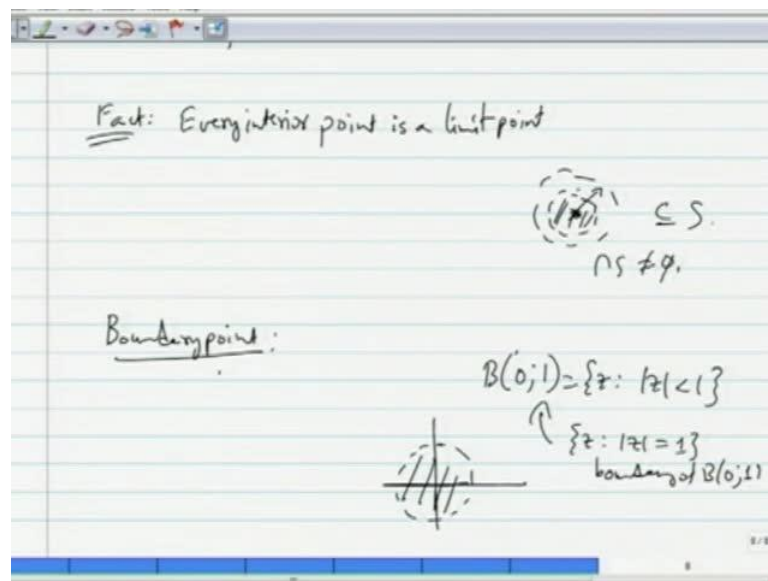 Fact: Every interior point is a limit point
⊆ S.
∩S ≠ φ.
Boundary point:
B(0;1) = {z: |z| < 1}
{z: |z| = 1}
boundary of B(0;1)
8